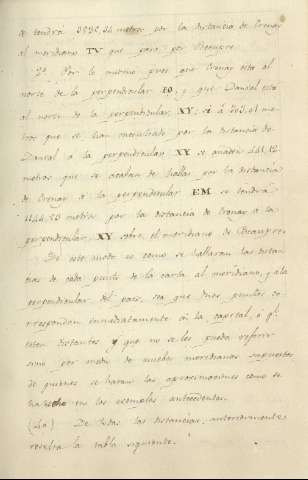 se tendra 3232,34 metros por la distancia de Cronay
al meridiano TV que pasa por Beaupre.
2°. Por lo mismo pues que Cronay esta al
norte de la perpendicular EO, y que Dansal esta
al norte de la perpendicular XY, si á 703,41 me
tros que se han calculado por la distancia de
Dansal á la perpendicular XY se añaden 441,12
metros que se acaban de hallar por la distancia
de Cronay á la perpendicular EM se tendrá
1144,53 metros por la distancia de Cronay á la
perpendicular XY sobre el meridiano de Beaupre.
De este modo es como se hallaran las distan
cias de cada punto de la carta al meridiano, y á la
perpendicular del pais, sea que dichos puntos co
rrespondan inmediatamente á la capital, ó qe.
esten distantes y que no se les pueda referir
sino por medio de nuebos meridianos supuestos
de quienes se haran las aproximaciones como se
ha hecho en los exemplos antecedentes.
(40) De todas las distancias, anteriormente
resulta la tabla siguiente.